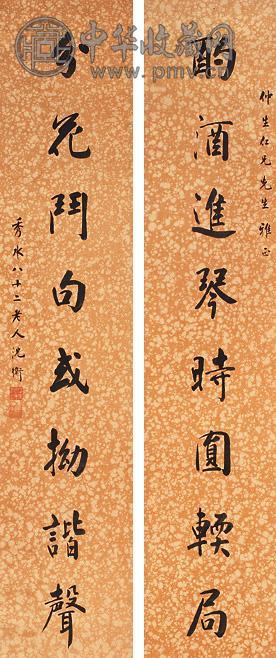 中华收藏网
www.pmv.cn
仲生仁兄先生雅正
酌酒進琴時圓輭局
分花鬥句或拗諧聲
秀水八十二老人沈衛